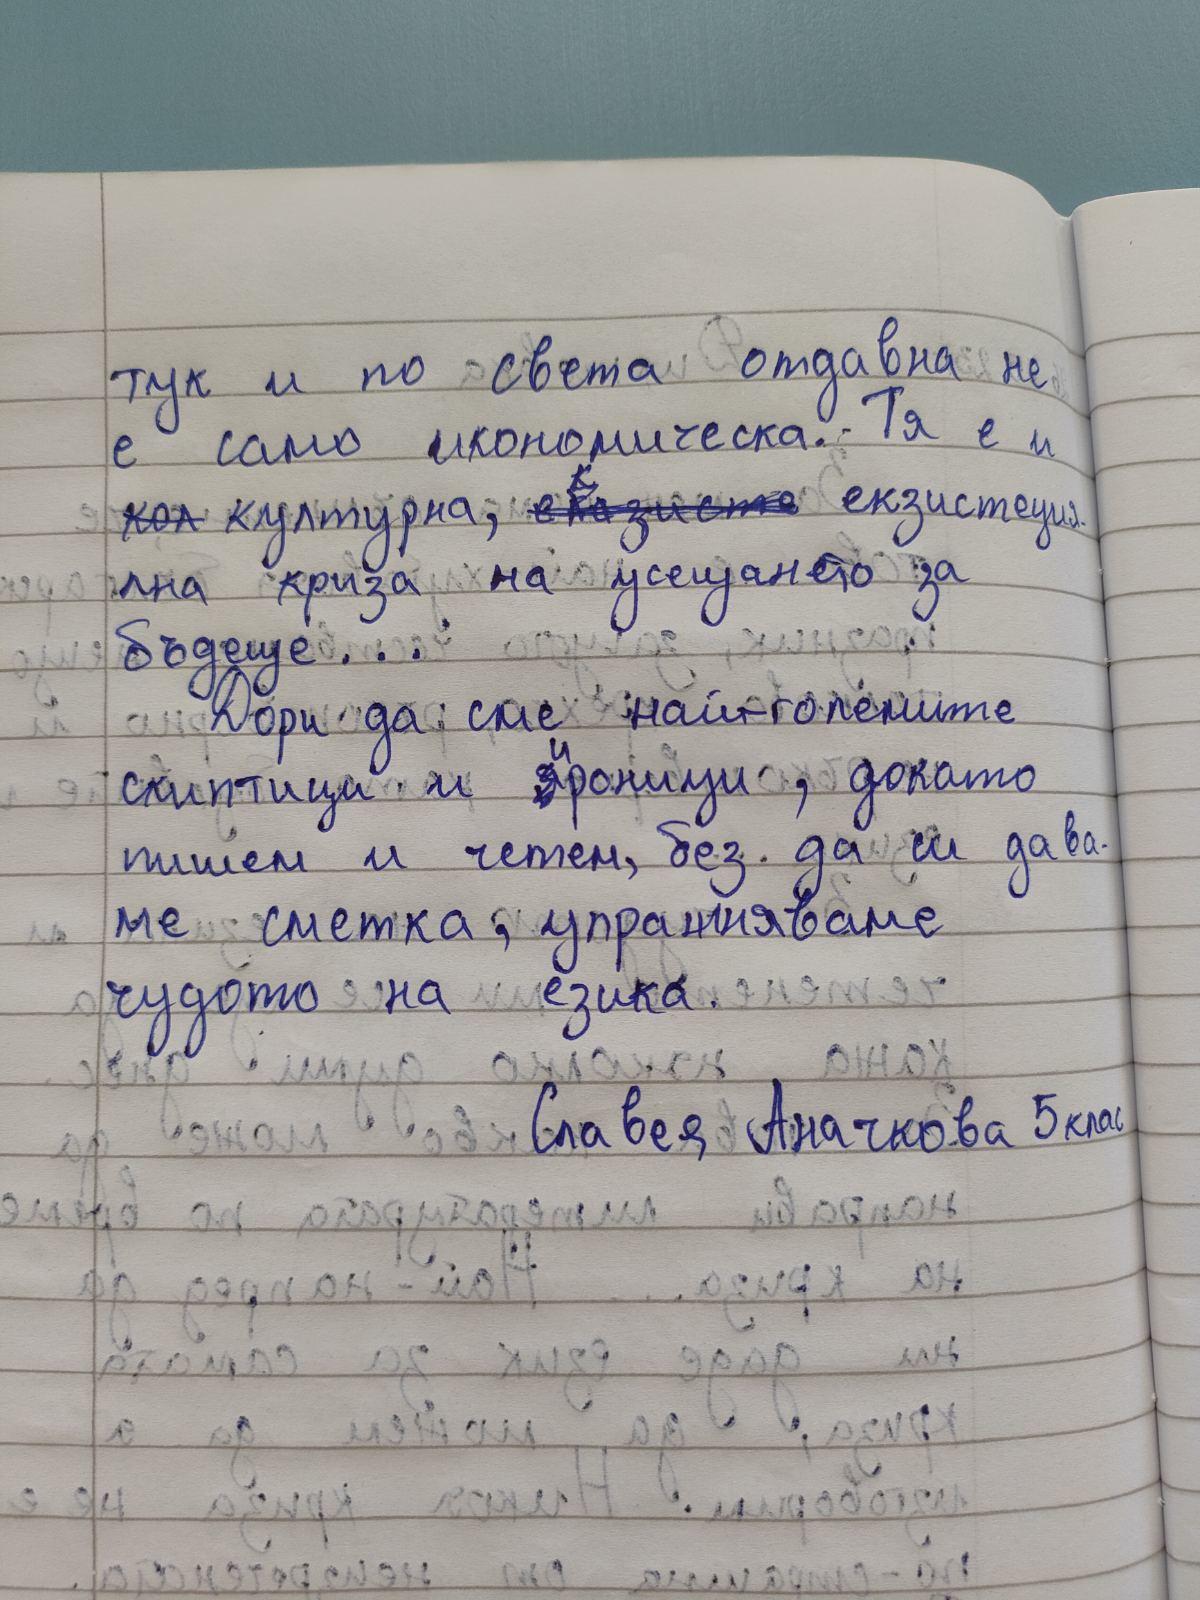 тук и по света отдавна не
е само икономическа. Тя е и
кол културна, екзисте екзистеция-
лна криза на усещането за
бъдеще...
Дори да сме най-големите
скиптици и ироници, докато
пишем и четем, без да си дава-
ме сметка, упражняваме
чудото на езика.
Славея Аначкова 5 клас